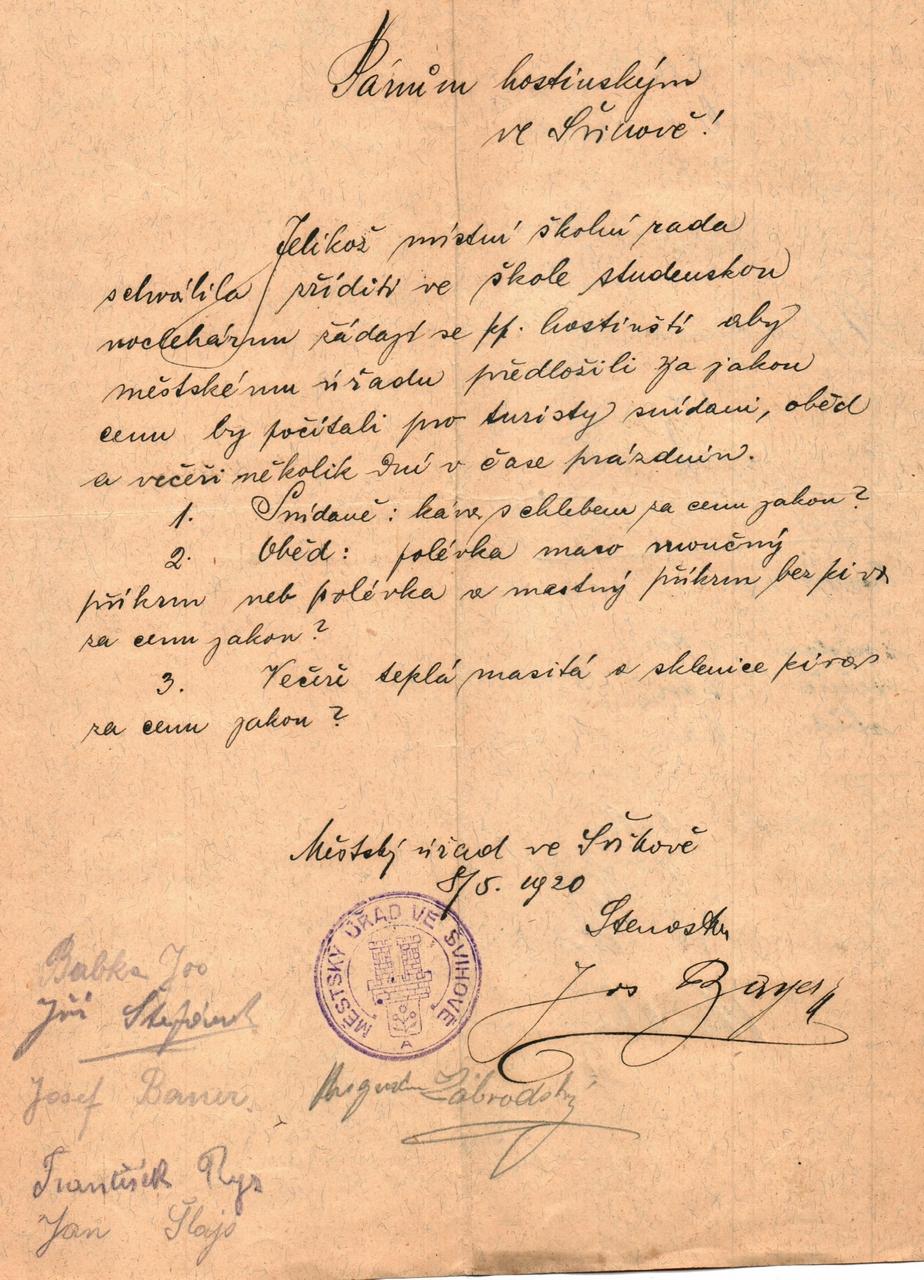 Pánům hostinským
ve Švihově!
Jelikož místní školní rada
schválila zříditi ve škole studenskou
noclehárnu žádají se pp. hostinští aby
městskému úřadu předložili za jakou
cenu by počítali pro turisty snídani, oběd
a večeři několik dní v čase prázdnin.
1. Snídaně: káva s chlebem za cenu jakou?
2. Oběd: polévka maso moučný
příkrm neb polévka a mastný příkrm bez piva
za cenu jakou?
3. Večeře teplá masitá a sklenice piva
za cenu jakou?
Městský úřad ve Švihově
8/5. 1920
Starosta
MĚSTSKÝ ÚŘAD VE ŠVIHOVĚ
A
Jos Bayer
Babka Jos
Jiří Štefánek
Josef Bauer
Zábrodský
František Rys
Jan Šlajs